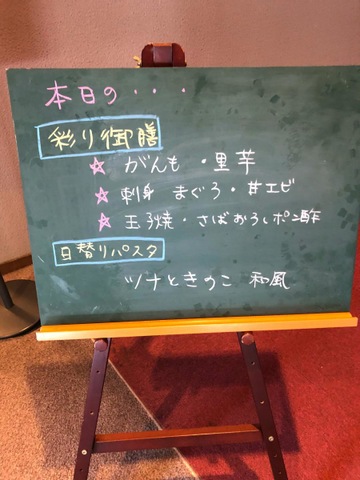 本日の・・・
彩り御膳
☆ がんも・里芋
☆ 刺身 まぐろ・甘エビ
☆ 玉子焼・さばおろしポン酢
日替りパスタ
ツナときのこ 和風